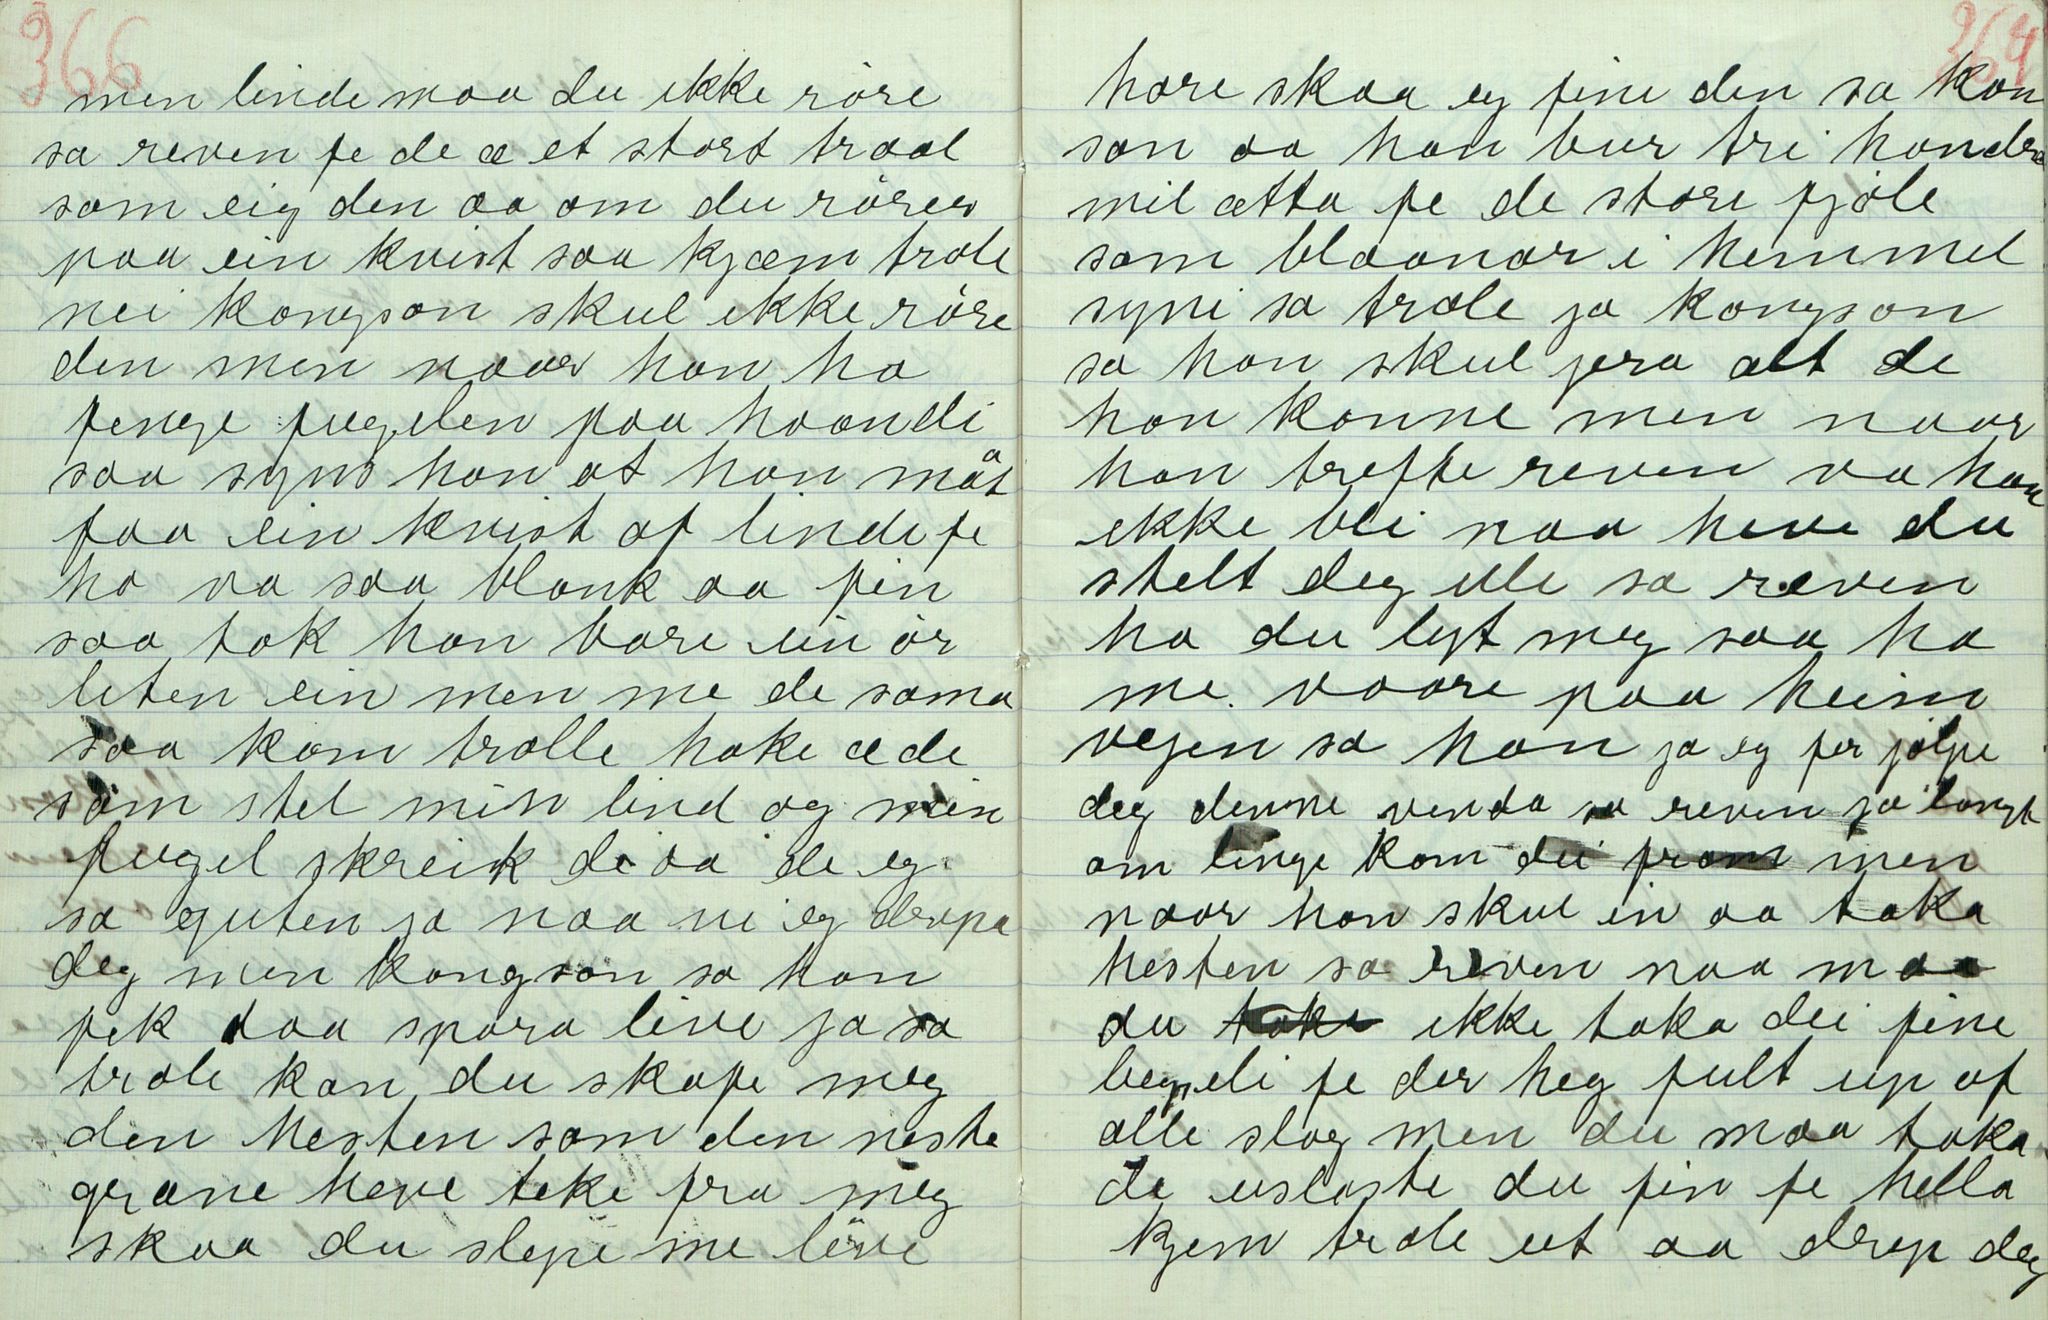 366
men linde maa du ikke röre
sa reven fe de æ et stort traal
som eig den aa om du rörer
paa ein kvist saa kjæm trole
nei kongson skul ikke röre
den men naar han ha
fenge fugelen paa haandi
saa syns han at han måt
faa ein kvist af linde fe
ho va saa blank aa fin
saa tok han bare ein ör
liten ein men me de sama
saa kom trolle hoke æ de
som stel min lind og min
fugel skreik de aa de eg
sa guten ja naa vi eg drepa
deg men kongson sa han
fek daa spara live ja sa
trole kan du skafe meg
den hesten som den neste
grane heve teke fra meg
skaa du slepe me live
364
hore skaa eg fine den sa kon
son aa han bur tri handre
mil ætta fe de store fjöle
som blaanar i hemmel
syni sa trole ja kongson
sa han skul jera alt de
han konne men naar
han trefte reven va han
ekke bli naa heve du
stelt deg ile sa reven
ha du lyt meg saa ha
me vaare paa heim
vegen sa han ja eg fer jölpe
deg denne venda sa reven ja langt
om lenge kom dei fram men
naar han skul in aa taka
hesten sa reven naa maa
du ikke taka dei fine
begseli fe der heg fult up af
alle slag men du maa taka
de uslaste du fin fe hella
kjem trole ut aa drep deg